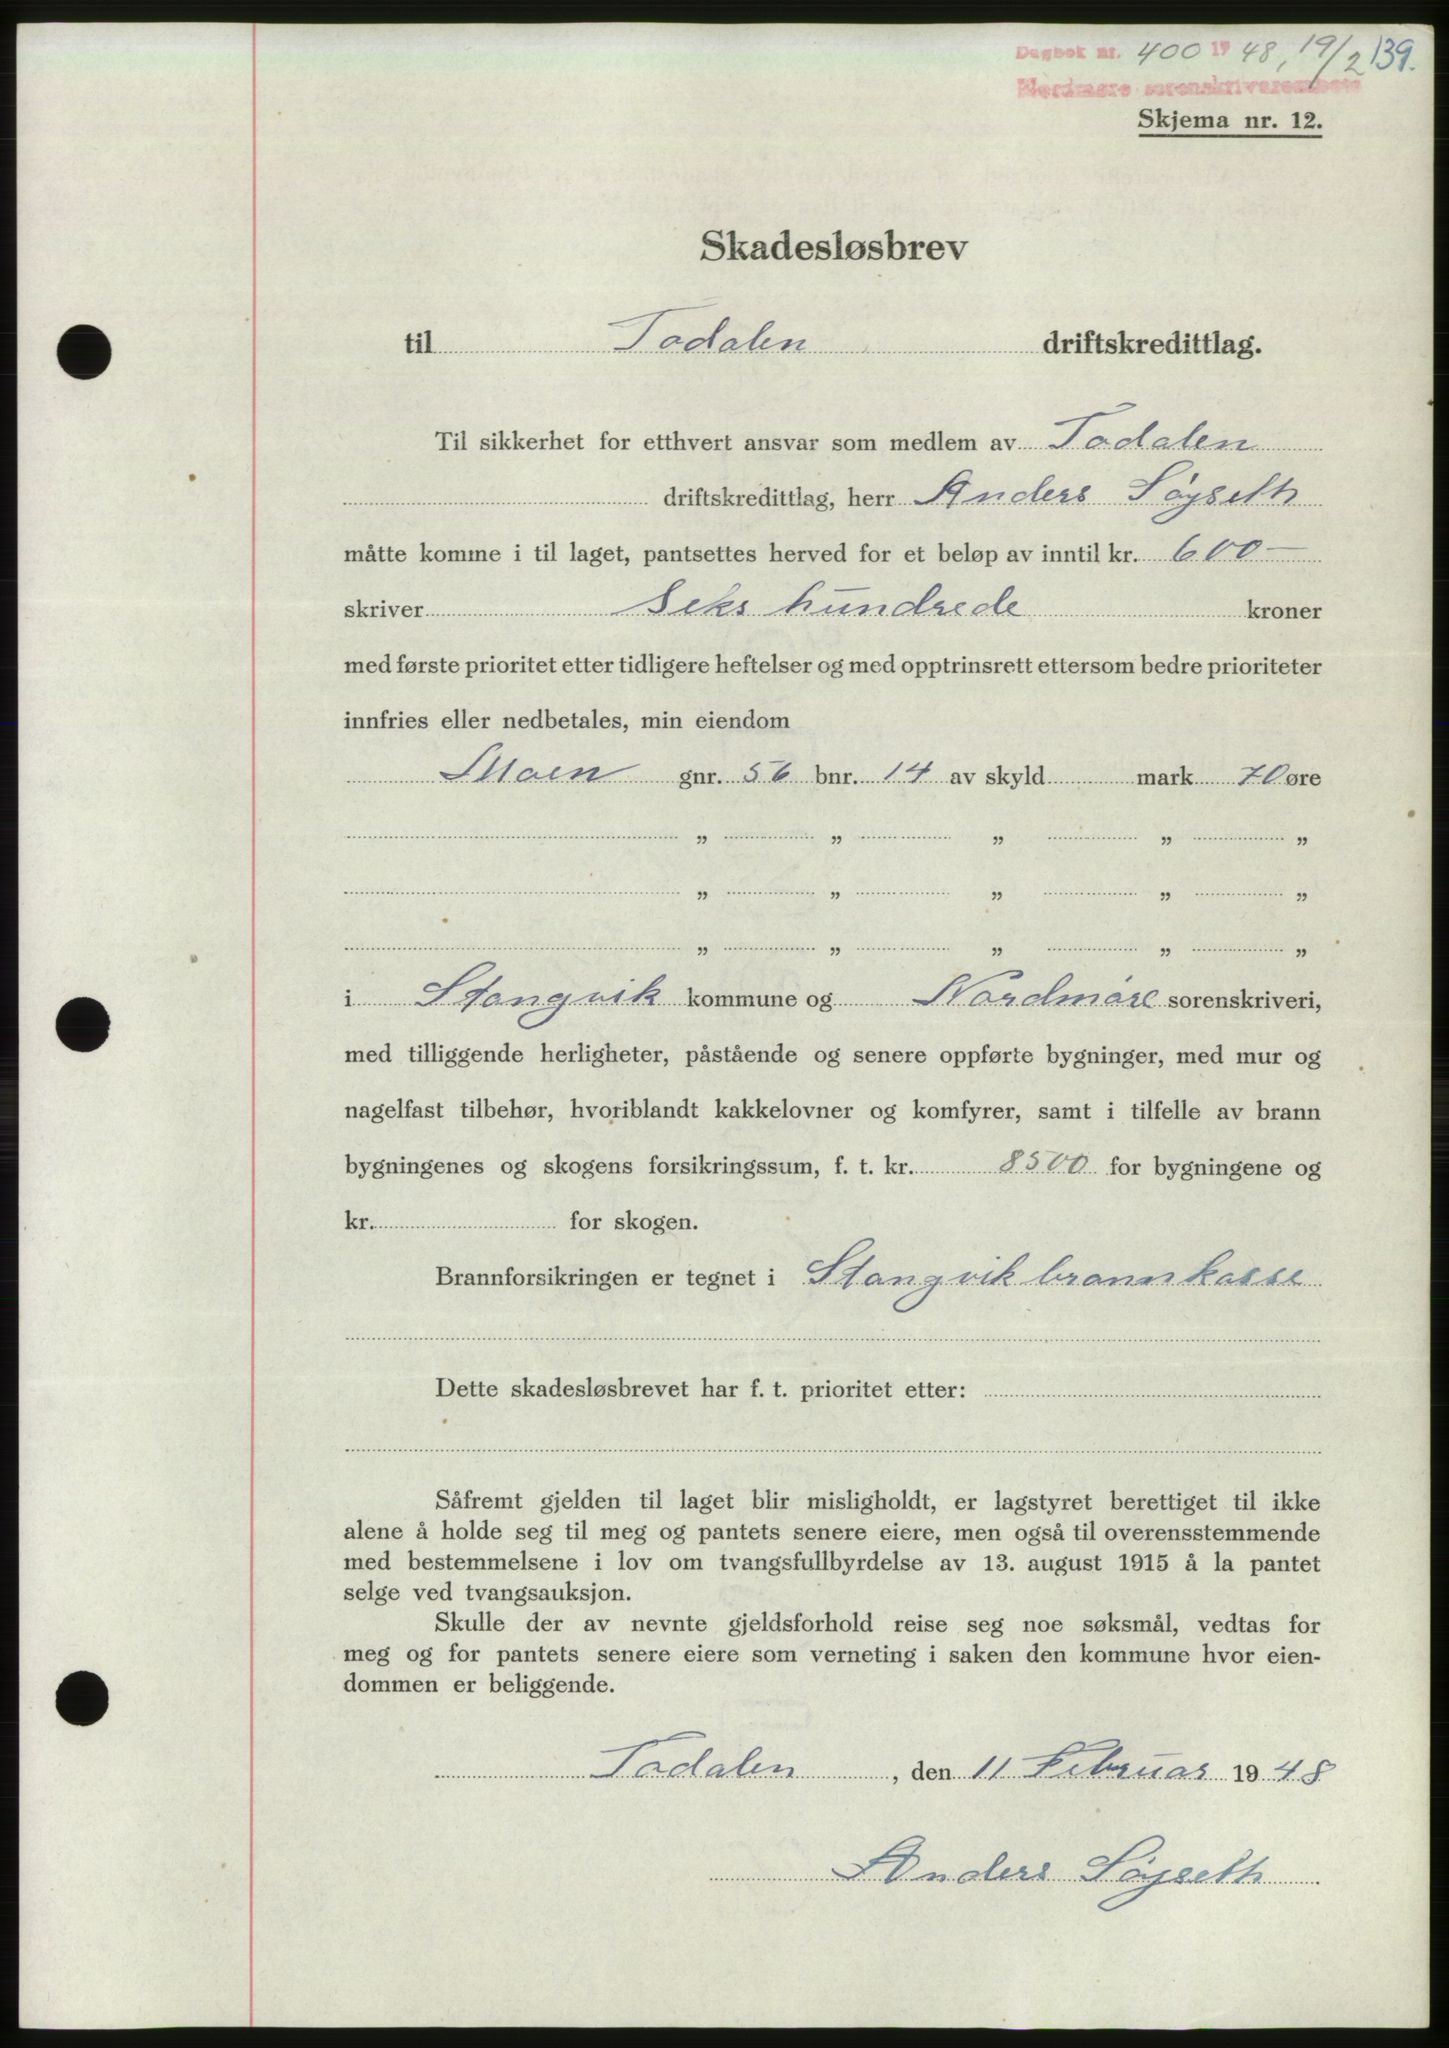 Dagbok nr. 400 19 48, 19/2 139.
Nordmøre sorenskriverembete
Skjema nr. 12.
Skadesløsbrev
til Todalen driftskredittlag.
Til sikkerhet for etthvert ansvar som medlem av Todalen
driftskredittlag, herr Anders Søyseth
måtte komme i til laget, pantsettes herved for et beløp av inntil kr. 600 —
skriver Seks hundrede kroner
med første prioritet etter tidligere heftelser og med opptrinsrett ettersom bedre prioriteter
innfries eller nedbetales, min eiendom
Moen gnr. 56 bnr. 14 av skyld mark 70 øre
„ „ „ „ „
„ „ „ „ „
„ „ „ „ „
i Stangvik kommune og Nordmøre sorenskriveri,
med tilliggende herligheter, påstående og senere oppførte bygninger, med mur og
nagelfast tilbehør, hvoriblandt kakkelovner og komfyrer, samt i tilfelle av brann
bygningenes og skogens forsikringssum, f. t. kr. 8500 for bygningene og
kr. for skogen.
Brannforsikringen er tegnet i Stangvik brannkasse
Dette skadesløsbrevet har f. t. prioritet etter:
Såfremt gjelden til laget blir misligholdt, er lagstyret berettiget til ikke
alene å holde seg til meg og pantets senere eiere, men også til overensstemmende
med bestemmelsene i lov om tvangsfullbyrdelse av 13. august 1915 å la pantet
selge ved tvangsauksjon.
Skulle der av nevnte gjeldsforhold reise seg noe søksmål, vedtas for
meg og for pantets senere eiere som verneting i saken den kommune hvor eien-
dommen er beliggende.
Todalen, den 11 Februar 1948
Anders Søyseth